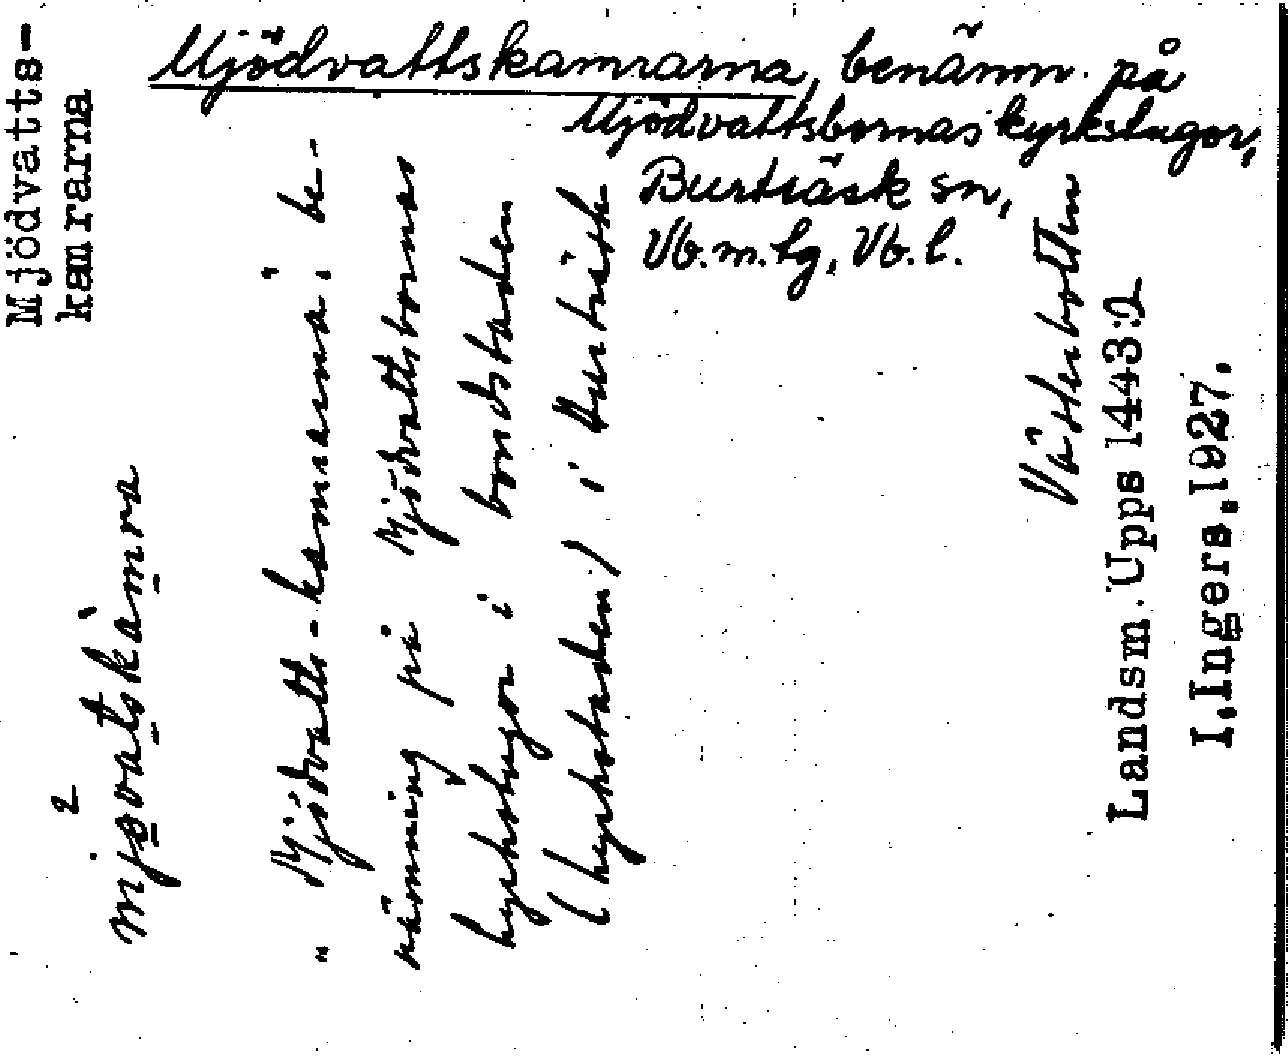 Mjödvattskamrarna, benämn. på
Mjödvattsbornas kyrkstugor,
Burträsk sn,
Vb.m.lg, Vb.l.
Mjödvatts-
kamrarna
"Mjödvatts-kamrarna", be-
nämning på Mjödvattsbornas
kyrkstugor i bondstaden
(kyrkstaden) i Burträsk
Västerbotten
Landsm. Upps 1443:1
I.Ingers.1927.